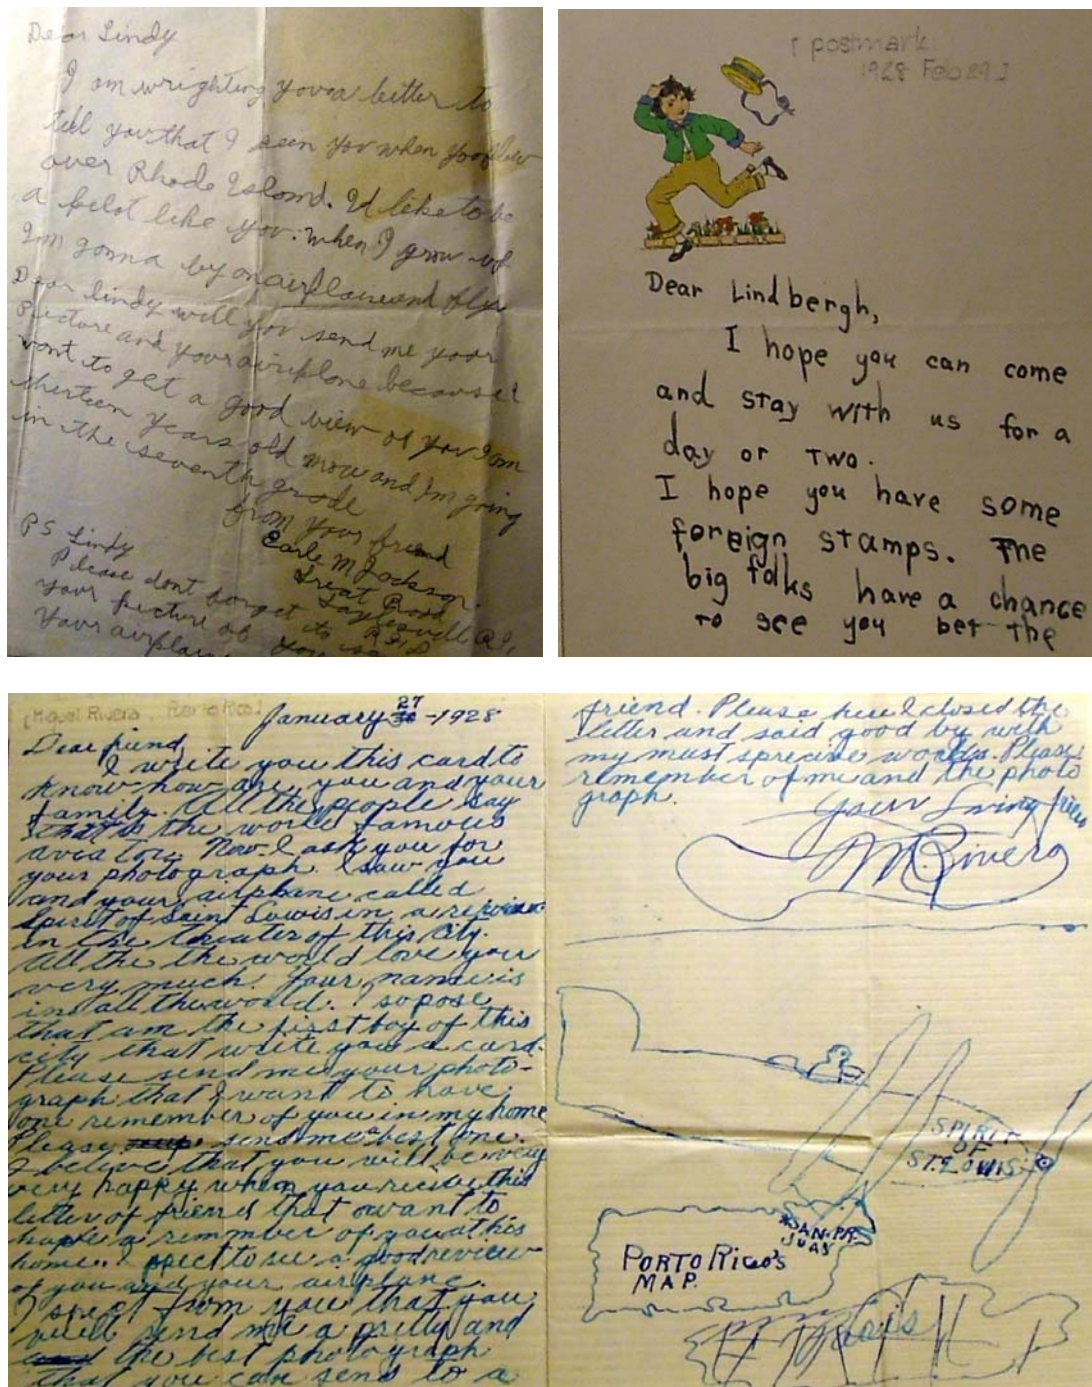 Dear Lindy
I am wrighting you a letter to
tell you that I seen you when you flew
over Rhode Island. I'd like to be
a pelot like you. When I grow up
I'm gonna by an airplane and fly.
Dear Lindy will you send me your
Picture and your airplane because I
want to get a good view of you I am
therteen years old now and I'm going
in the seventh grade
from your friend
Earle M Jackson.
Great Road
PS Lindy
Please dont forget to
your picture of you
Your airplane
[postmark:
1928 Feb 29]
Dear Lindbergh,
I hope you can come
and stay with us for a
day or two.
I hope you have some
foreign stamps. The
big folks have a chance
to see you bet the
[Miguel Rivera, Porto Rico]
January 27 30 -1928
Dear friend,
I write you this card to
know how are you and your
family. All the people say
that is the world famous
aviator. Now I ask you for
your photograph. I saw you
and your airplane called
Spirit of Saint Louis in a
in the theater of this city.
All the the world love you
very much. Your name is
in all the world. I sopose
that am the first boy of this
city that write you a card.
Please send me your photo-
graph that I want to have
one remember of you in my home
Please send me a best one.
I believe that you will be very
very happy when you recive this
letter of friend that want to
have a remmber of you at his
home. I spect to see a good review
of you and your airplane.
I spect from you that you
will send me a pretty and
the best photograph
that you can send to a
friend. Please here I closed the
letter and said good by with
my must words. Please
remember of me and the photo
graph.
Your loving friend
M. Rivera
SPIRIT
OF
ST. LOUIS
*SAN P.R.
JUAN
PORTO RICO'S
MAP.